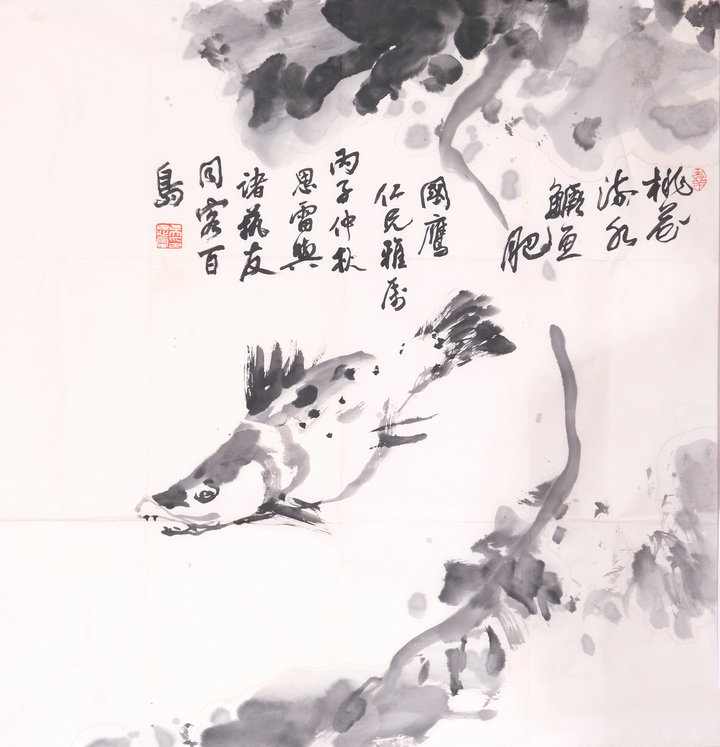 桃花
流水
鱖魚
肥
國鷹
仁兄雅属
丙子仲秋
思雷與
諸藝友
同客百
島